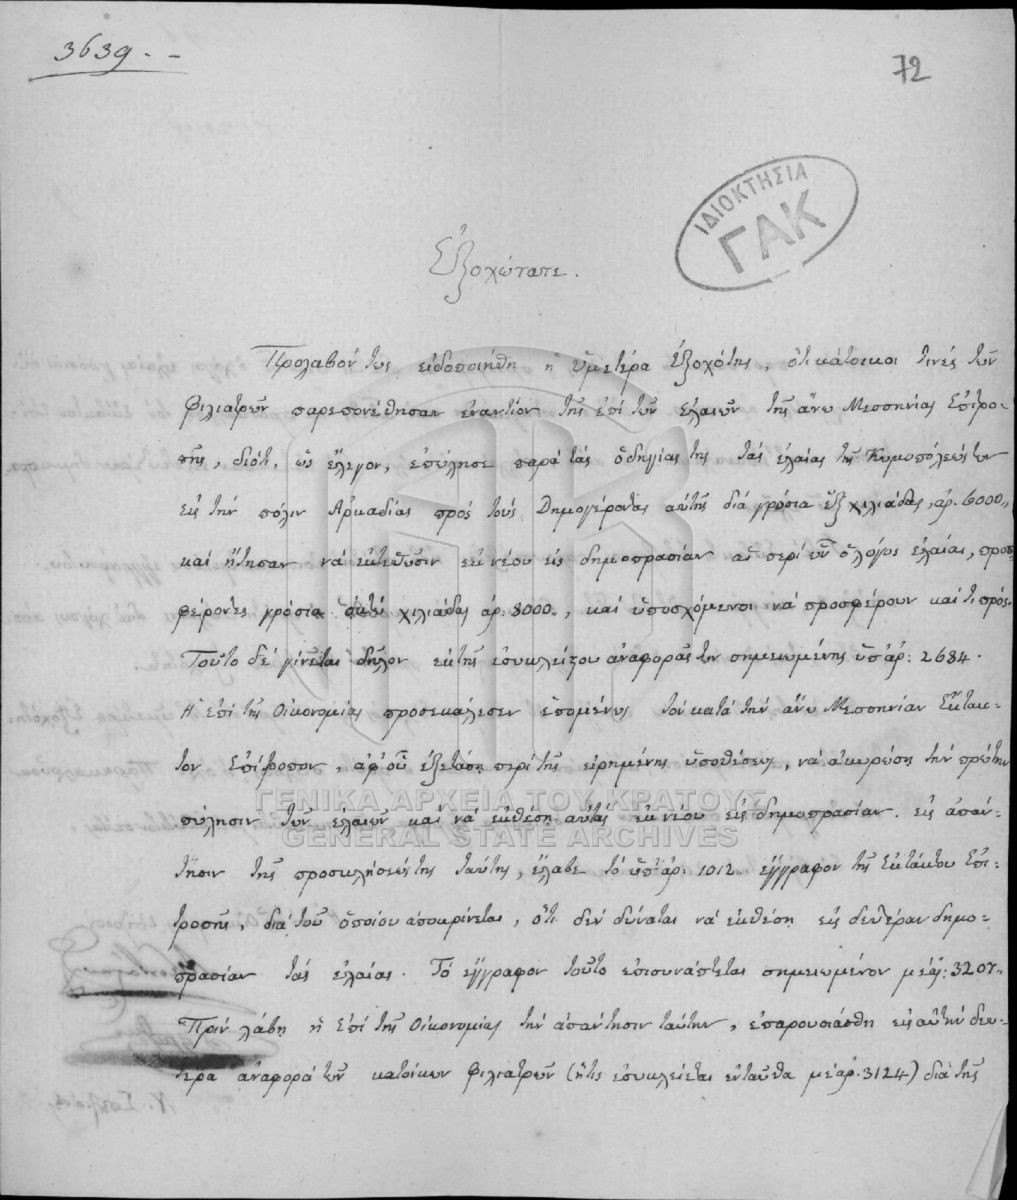 3639.-
72
ΙΔΙΟΚΤΗΣΙΑ
ΓΑΚ
Ἐξοχώτατε.
Προλαβόντως εἰδοποιήθη ἡ ὑμετέρα ἐξοχότης, ὅτι κάτοικοι τινές τῶν
Φιλιατρῶν παρεπονέθησαν ἐναντίον τῆς ἐπί τῶν ἐλαιῶν τῆς ἄνω Μεσσηνίας Ἐπιτρο-
πῆς, διότι, ὡς ἔλεγον, ἐπώλησε παρά τάς ὁδηγίας της τάς ἐλαίας τῆς Κωμοπόλεώς των
εἰς τήν πόλιν Ἀρκαδίας πρός τούς Δημογέροντας αὐτῆς διά γρόσια ἕξ χιλιάδας, ἀρ. 6000,,
καί ἤτησαν νά ἐκτεθῶσιν ἐκ νέου εἰς δημοπρασίαν αἱ περί ὧν ὁ λόγος ἐλαίαι, προσ-
φέροντες γρόσια ὀκτώ χιλιάδας ἀρ: 8000,, καί ὑποσχόμενοι νά προσφέρουν καί τι πρός.
Τοῦτο δέ γίνεται δῆλον ἐκ τῆς ἐσωκλείστου ἀναφορᾶς των σημειωμένης ὑπ' ἀρ: 2684.
Ἡ ἐπί τῆς Οἰκονομίας προσεκάλεσεν ἑπομένως τόν κατά τήν ἄνω Μεσσηνίαν Ἔκτακ-
τον Ἐπίτροπον, ἀφ' οὗ ἐξετάση περί τῆς εἰρημένης ὑποθέσεως, νά ἀκυρώση τήν πρώτην
πώλησιν τῶν ἐλαιῶν καί νά ἐκθέση αὐτάς ἐκ νέου εἰς δημοπρασίαν. εἰς ἀπάν-
τησιν τῆς προσκλήσεώς της ταύτης, ἔλαβε τό ὑπ' ἀρ: 1012,, ἔγγραφον τῆς Ἐκτάκτου Ἐπι-
τροπῆς, διά τοῦ ὁποίου ἀποκρίνεται, ὅτι δέν δύναται νά ἐκθέση εἰς δευτέραν δημο-
πρασίαν τάς ἐλαίας. Τό ἔγγραφον τοῦτο ἐπισυνάπτεται σημειωμένον μέ ἀρ: 3207,,
Πρίν λάβη ἡ Ἐπί τῆς Οἰκονομίας τήν ἀπάντησιν ταύτην, ἐπαρουσιάσθη εἰς αὐτήν δευ-
τέρα ἀναφορά τῶν κατοίκων Φιλιατρῶν (ἥτις ἐσωκλείεται ἐνταῦθα μέ ἀρ. 3124) διά τῆς
ΓΕΝΙΚΑ ΑΡΧΕΙΑ ΤΟΥ ΚΡΑΤΟΥΣ
GENERAL STATE ARCHIVES